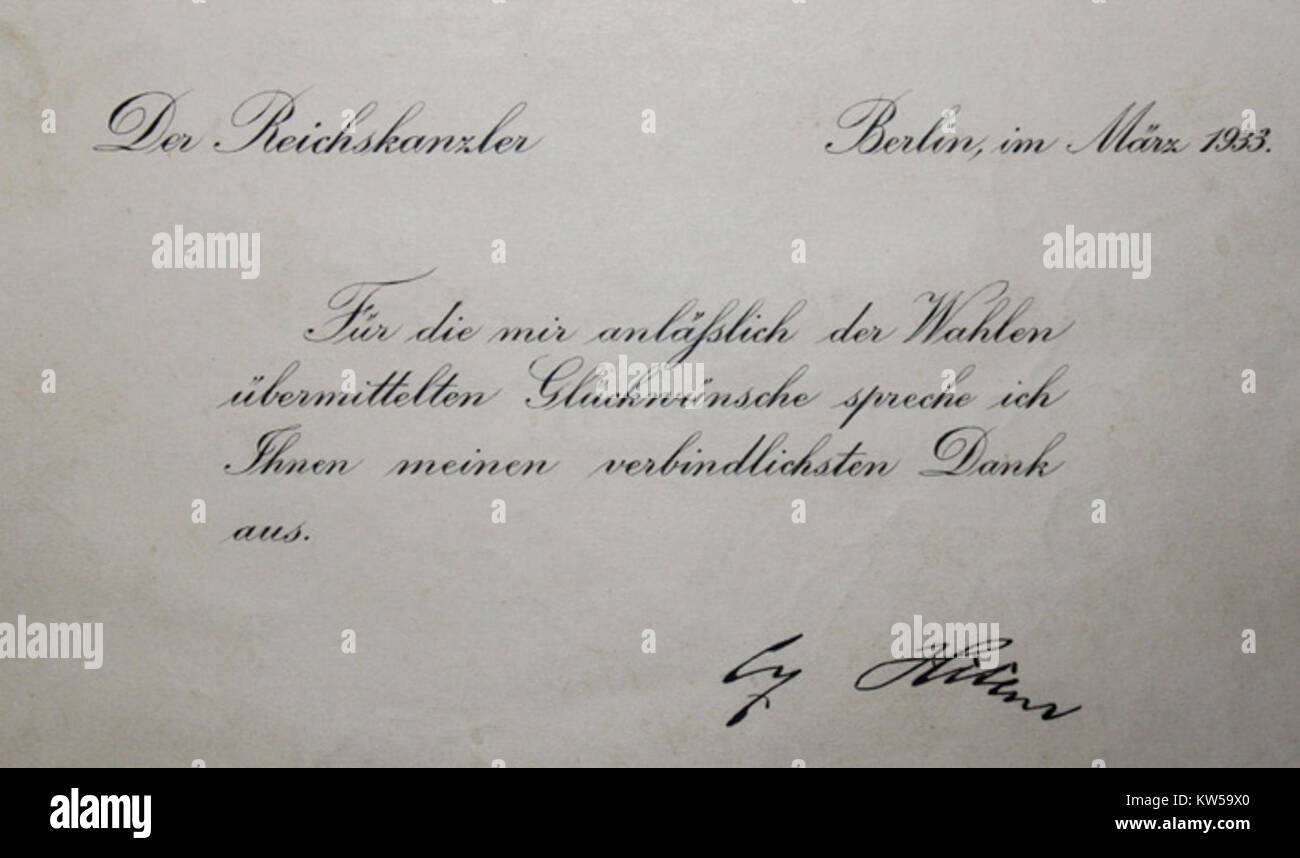 Der Reichskanzler Berlin, im März 1933.
Für die mir anläßlich der Wahlen
übermittelten Glückwünsche spreche ich
Ihnen meinen verbindlichsten Dank
aus.
Hitler
alamy
Image ID: KW59X0
www.alamy.com